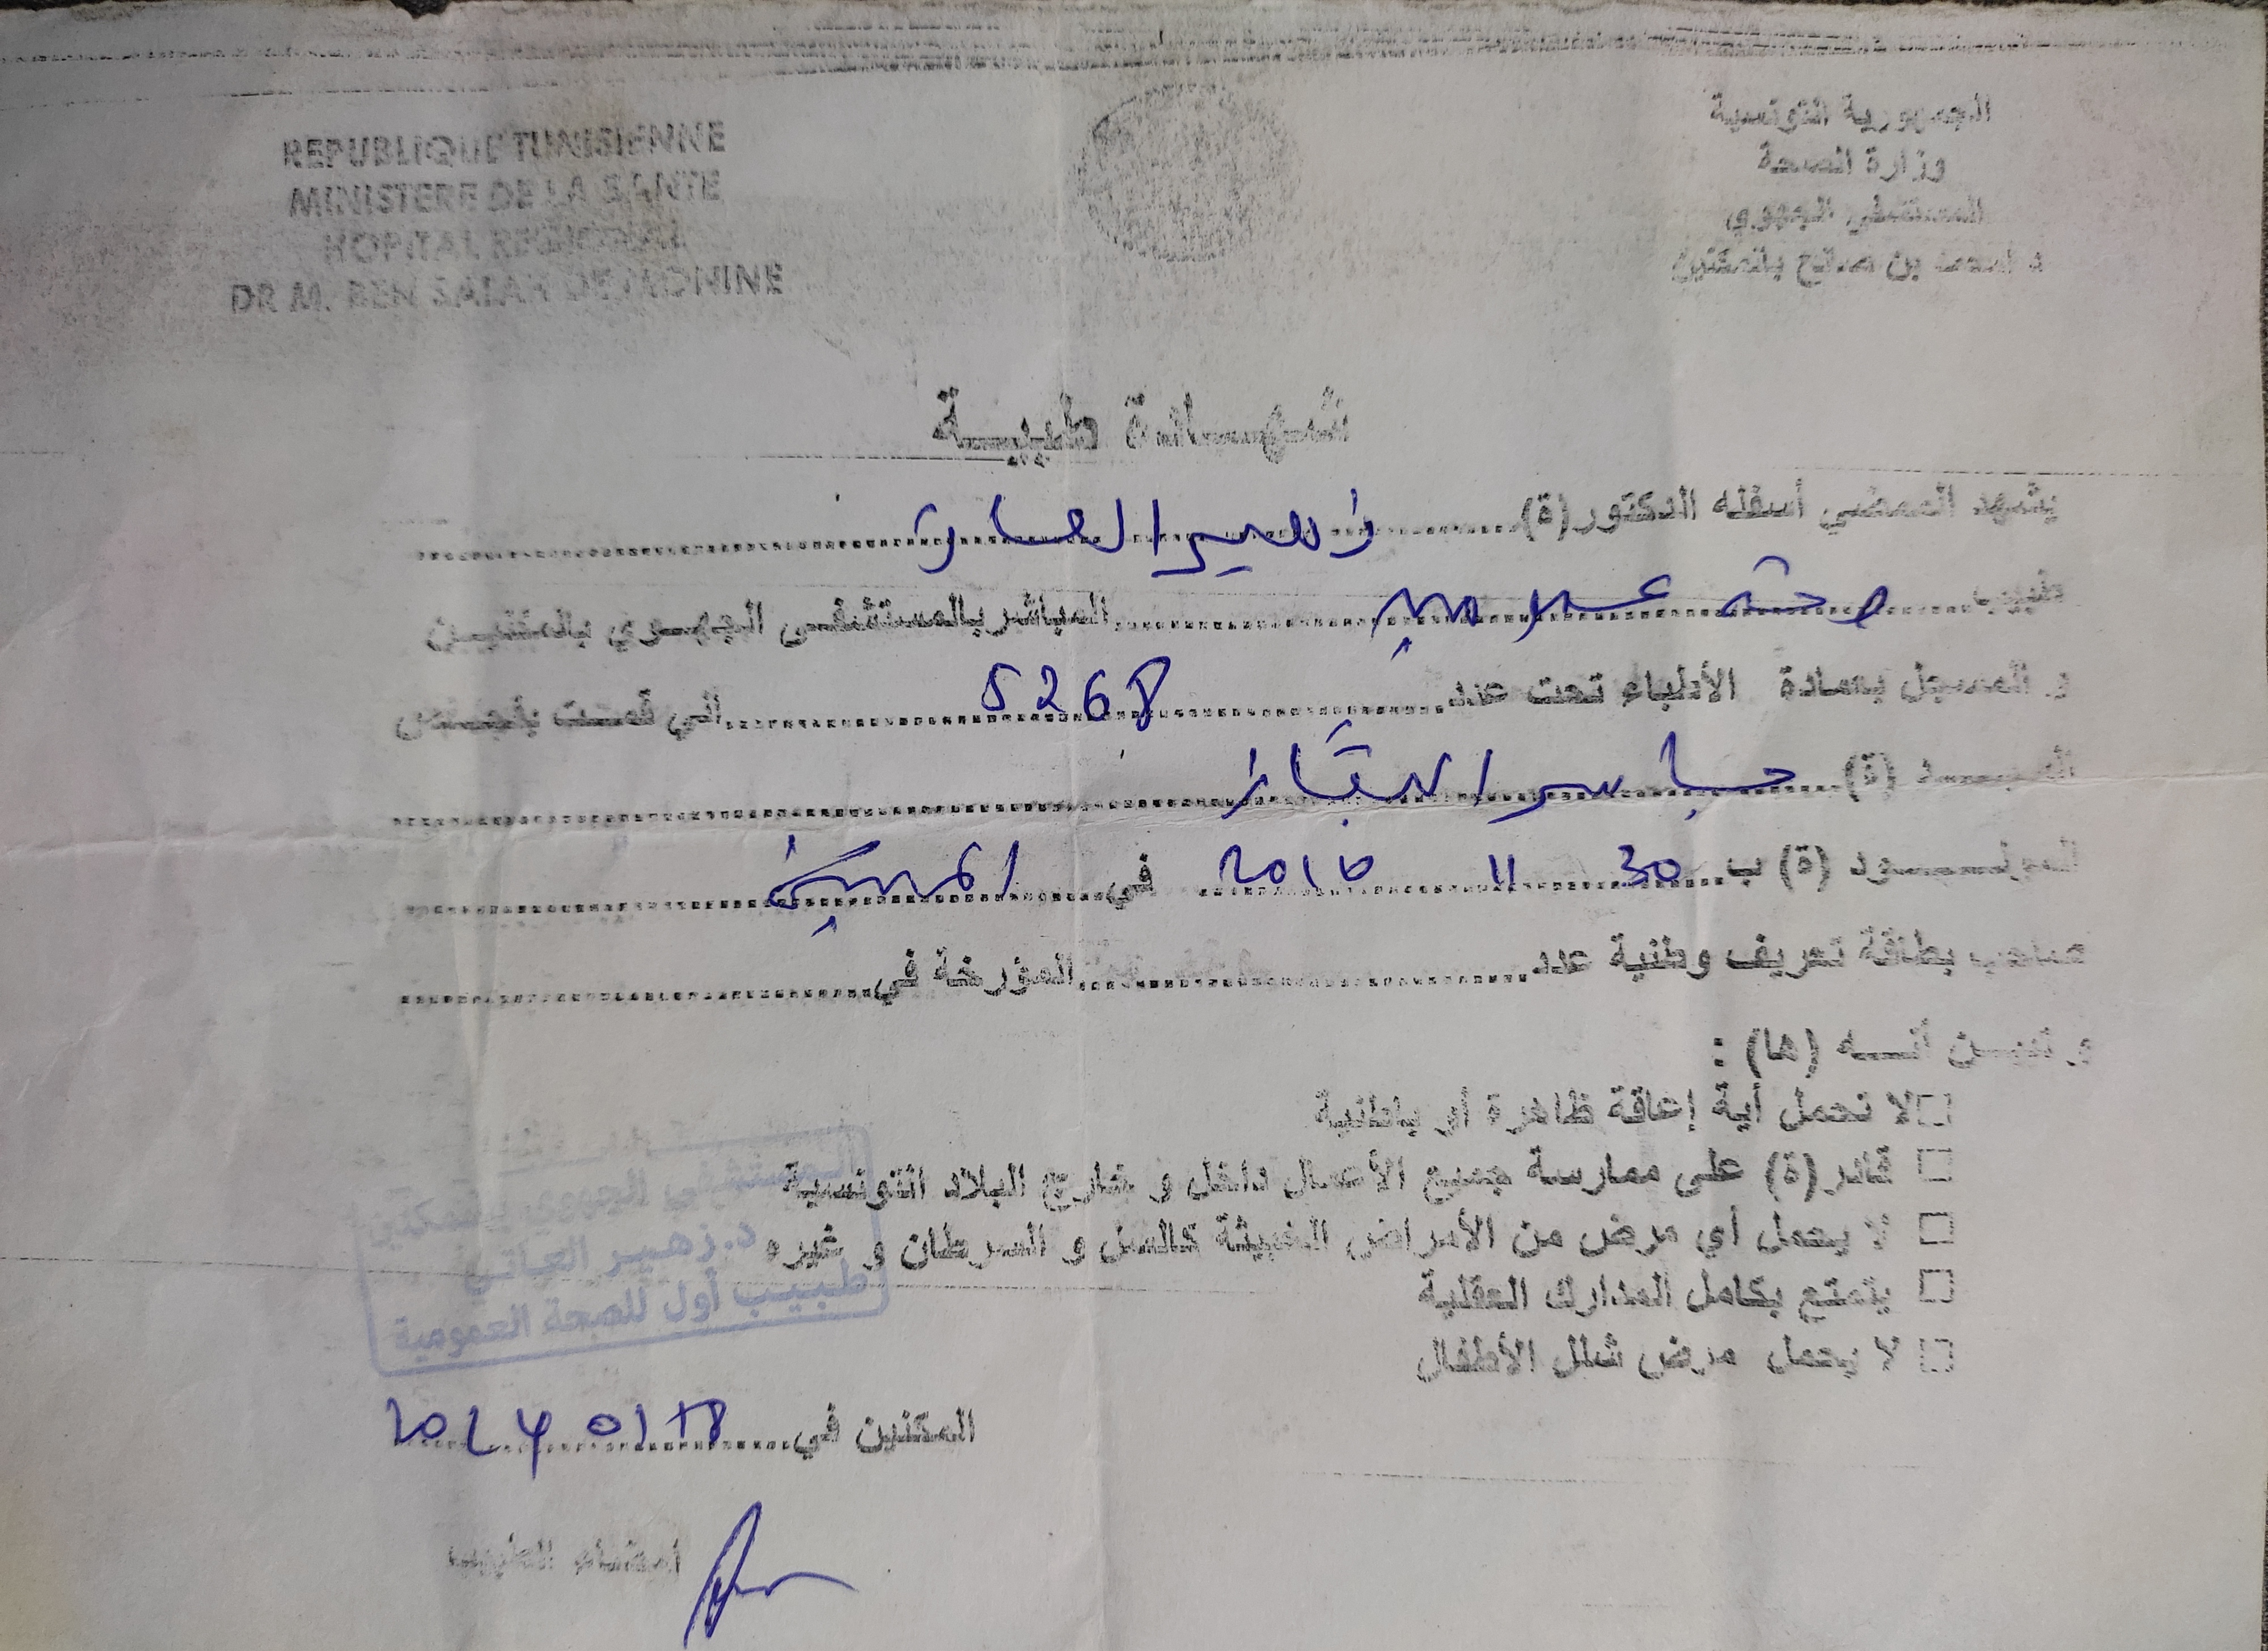 REPUBLIQUE TUNISIENNE
MINISTERE DE LA SANTE
HOPITAL REGIONAL
DR M. BEN SALAH DE MOKNINE
الجمهورية التونسية
وزارة الصحة
المستشفى الجهوي
د امحمد بن صالح بالمكنين
شهـــادة طبيـــة
يشهد الممضي أسفله الدكتور(ة)............ زهير العاتي ............
طبيب............ صحة عمومية ............المباشر بالمستشفى الجهوي بالمكنين
و المسجل بعمادة الأطباء تحت عدد............ 5268 ............اني قمت بفحص
السيد (ة)............
المولود (ة) ب............ 30 11 ............ في............
صاحب بطاقة تعريف وطنية عدد............المؤرخة في............
و تبين أنه (ها) :
□ لا تحمل أية إعاقة ظاهرة أو باطنية
□ قادر(ة) على ممارسة جميع الأعمال داخل و خارج البلاد التونسية
□ لا يحمل أي مرض من الأمراض الخبيثة كالسل و السرطان و غيره
□ يتمتع بكامل المدارك العقلية
□ لا يحمل مرض شلل الأطفال
المستشفى الجهوي بالمكنين
د. زهير العاتي
طبيب أول للصحة العمومية
المكنين في............ 2024
امضاء الطبيب